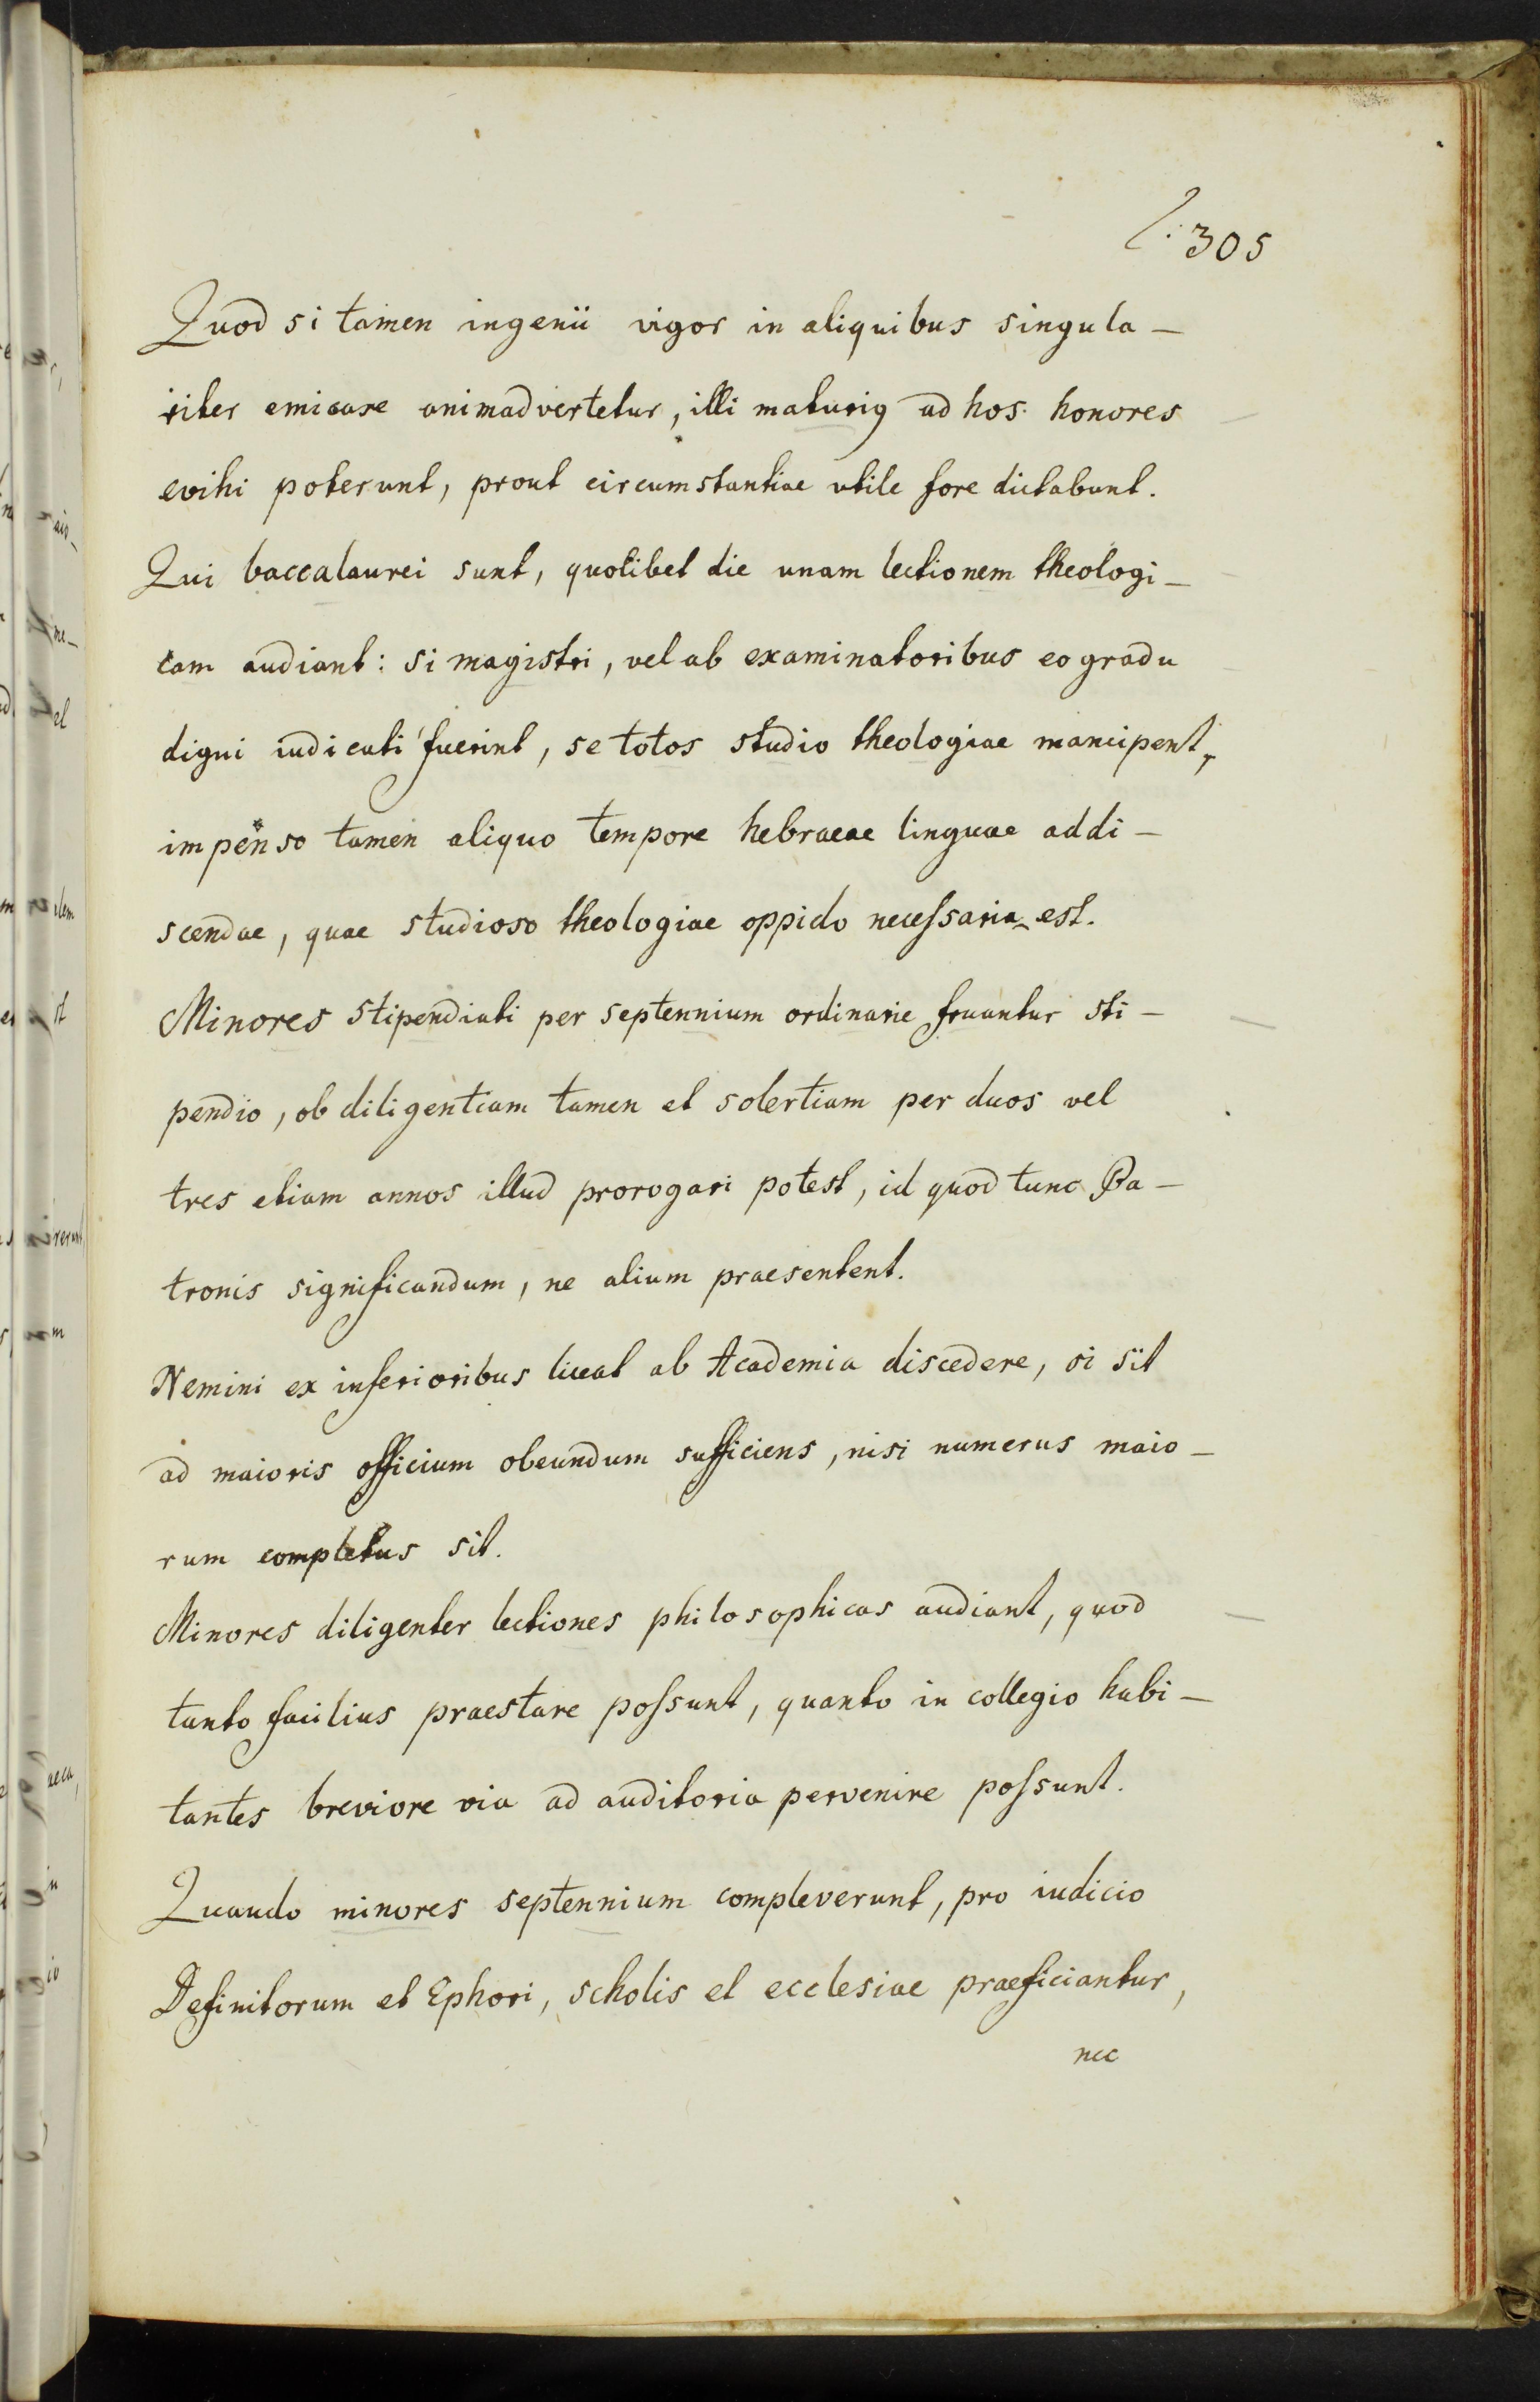 305
Quod si tamen ingenii vigor in aliquibus singula-
riter emicare animadvertetur, illi maturius ad hos honores
evihi poterunt, prout circumstantiae utile fore dictabunt.
Qui baccalaurei sunt, quolibet die unam lectionem theologi-
cam audiant: si magistri, vel ab examinatoribus eo gradu
digni iudicati fuerint, se totos studio theologiae mancipent,
impenso tamen aliquo tempore hebraeae linguae addi-
scendae, quae studioso theologiae oppido necessaria est.
Minores stipendiati per septennium ordinarie fruantur sti-
pendio, ob diligentiam tamen et solertiam per duos vel
tres etiam annos illud prorogari potest, id quod tunc Pa-
tronis significandum, ne alium praesentent.
Nemini ex inferioribus liceat ab Academia discedere, si sit
ad maioris officium obeundum sufficiens, nisi numerus maio-
rum completus sit.
Minores diligenter lectiones philosophicas audiant, quod
tanto facilius praestare possunt, quanto in collegio habi-
tantes breviore via ad auditoria pervenire possunt.
Quando minores septennium compleverunt, pro iudicio
Definitorum et Ephori, scholis et ecclesiae praeficiantur,
nec